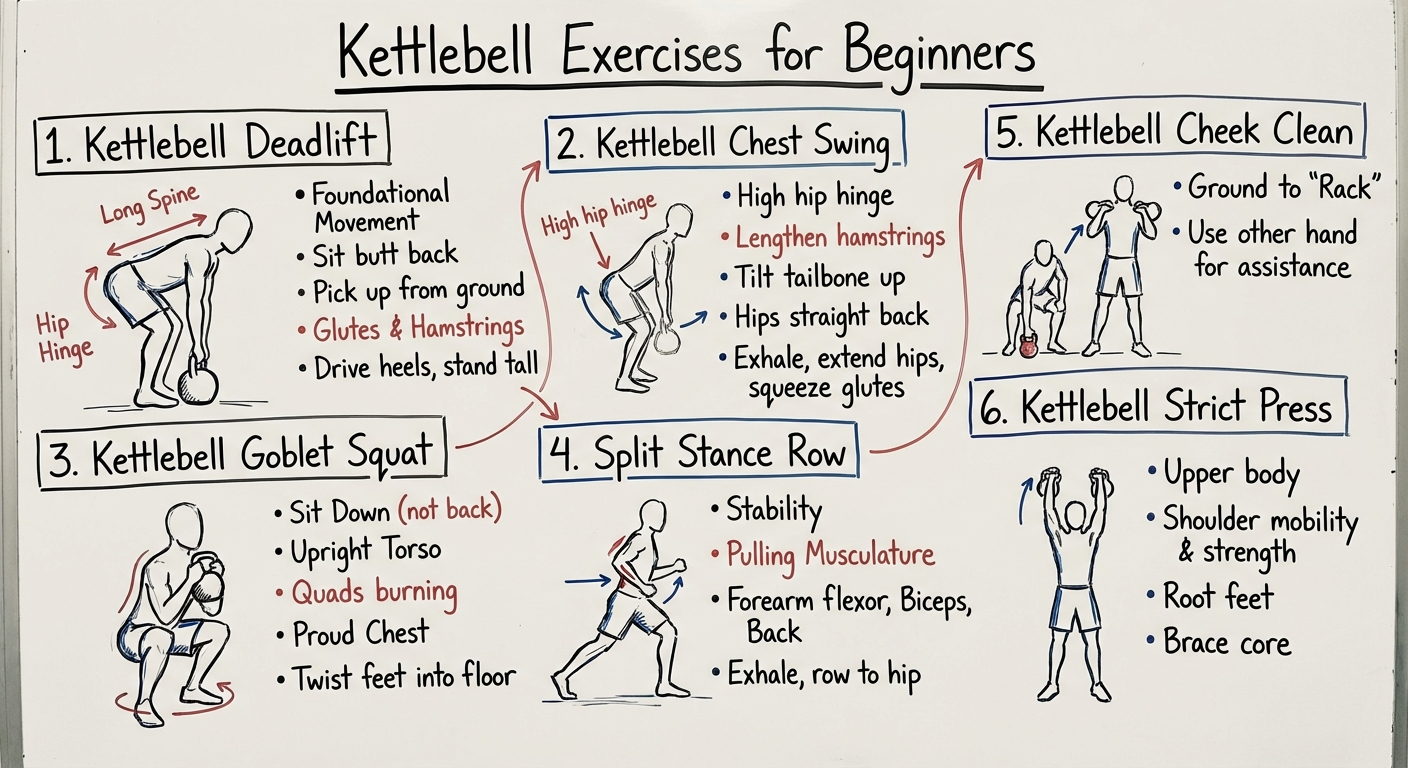 Kettlebell Exercises for Beginners
1. Kettlebell Deadlift
Long Spine
Hip
Hinge
• Foundational
Movement
• Sit butt back
• Pick up from ground
• Glutes & Hamstrings
• Drive heels, stand tall
2. Kettlebell Chest Swing
High hip hinge
• High hip hinge
• Lengthen hamstrings
• Tilt tailbone up
• Hips straight back
• Exhale, extend hips,
squeeze glutes
3. Kettlebell Goblet Squat
• Sit Down (not back)
• Upright Torso
• Quads burning
• Proud Chest
• Twist feet into floor
4. Split Stance Row
• Stability
• Pulling Musculature
• Forearm flexor, Biceps,
Back
• Exhale, row to hip
5. Kettlebell Cheek Clean
• Ground to "Rack"
• Use other hand
for assistance
6. Kettlebell Strict Press
• Upper body
• Shoulder mobility
& strength
• Root feet
• Brace core